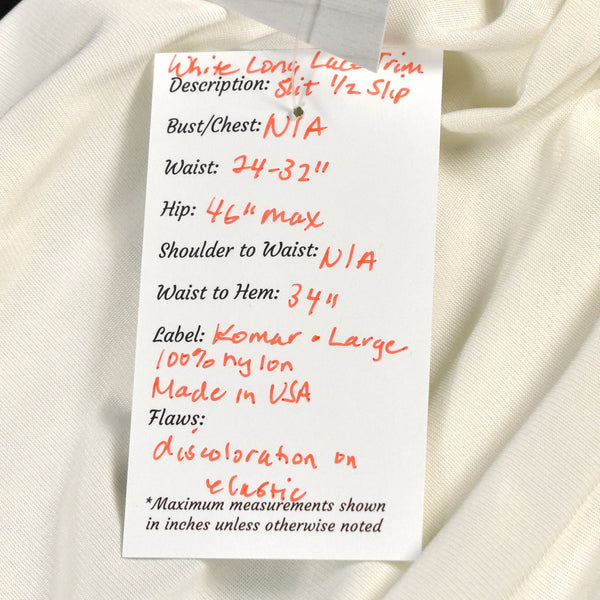 White Long Lace Trim
Description: Slit 1/2 Slip
Bust/Chest: N/A
Waist: 24-32"
Hip: 46" max
Shoulder to Waist: N/A
Waist to Hem: 34"
Label: Komar • Large
100% nylon
Made in USA
Flaws:
discoloration on
elastic
*Maximum measurements shown
in inches unless otherwise noted